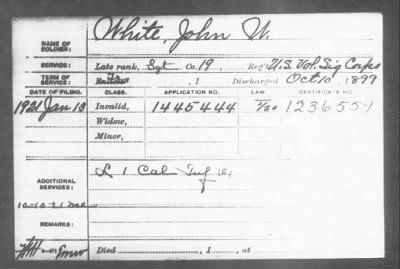 White, John W.
NAME OF SOLDIER:
SERVICE: Late rank, Sgt Co. 19 Reg't U.S. Vol. Sig Corps
TERM OF SERVICE: , 1 Discharged Oct 10, 1899
DATE OF FILING. CLASS. APPLICATION NO. LAW. CERTIFICATE NO.
1921 Jan 13 Invalid, 1445444 1236559
Widow,
Minor,
ADDITIONAL SERVICES: L 1 Cal Inf
10-10-21
REMARKS:
Died , 1 , at